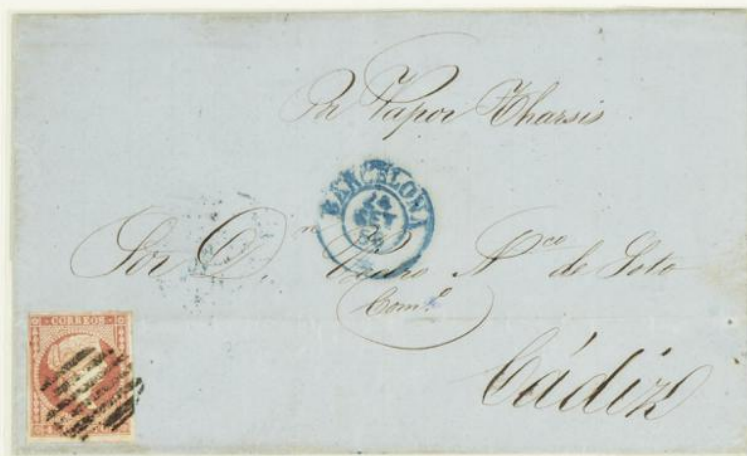 Pr Vapor Tharsis
BARCELONA
14
SET
Sor Dn Pedro Nco de Soto
Comº
Cádiz
CORREOS